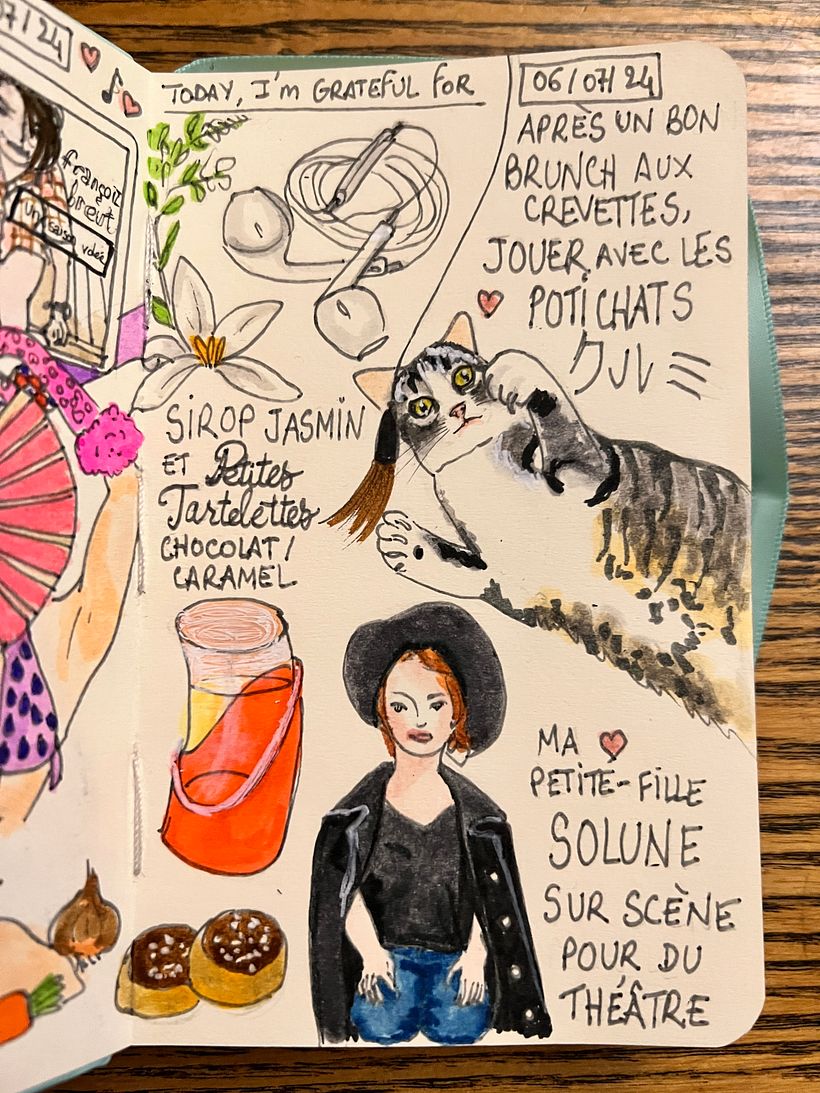 07/24
françoiz
breut
une saison volée
TODAY, I'm GRATEFUL FOR
06/07/24
APRÈS UN BON
BRUNCH AUX
CREVETTES,
JOUER AVEC LES
POTI CHATS
クルミ
SIROP JASMIN
ET Petites
Tartelettes
CHOCOLAT/
CARAMEL
MA
PETITE-FILLE
SOLUNE
SUR SCÈNE
POUR DU
THÉÂTRE